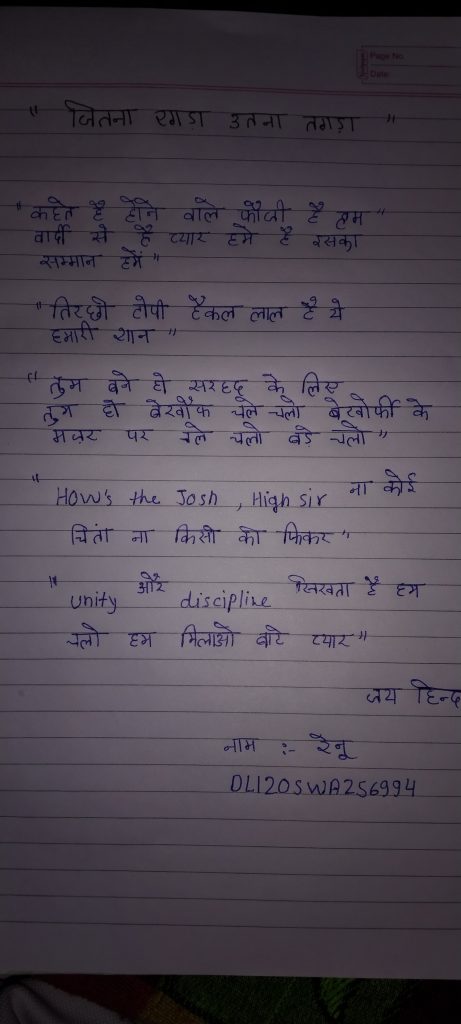 Page No.
Date
" जितना रगड़ा उतना तगड़ा "
" कहते है होने वाले फौजी है हम "
वार्दी से है प्यार हमे है इसका
सम्मान हमें "
" तिरछी टोपी हैकल लाल है ये
हमारी शान "
" तुम बने हो सरहद के लिए
तुम हो बेखौफ चले चलो बेखोर्फी के
मंजर पर चले चलो बड़े चलो "
" How's the Josh , High sir ना कोई
चिंता ना किसी को फिकर "
" unity और discipline सिखता है हम
चलो हम मिलाओ बाटे प्यार "
जय हिन्द
नाम :- रेनू
DL120SWA256994